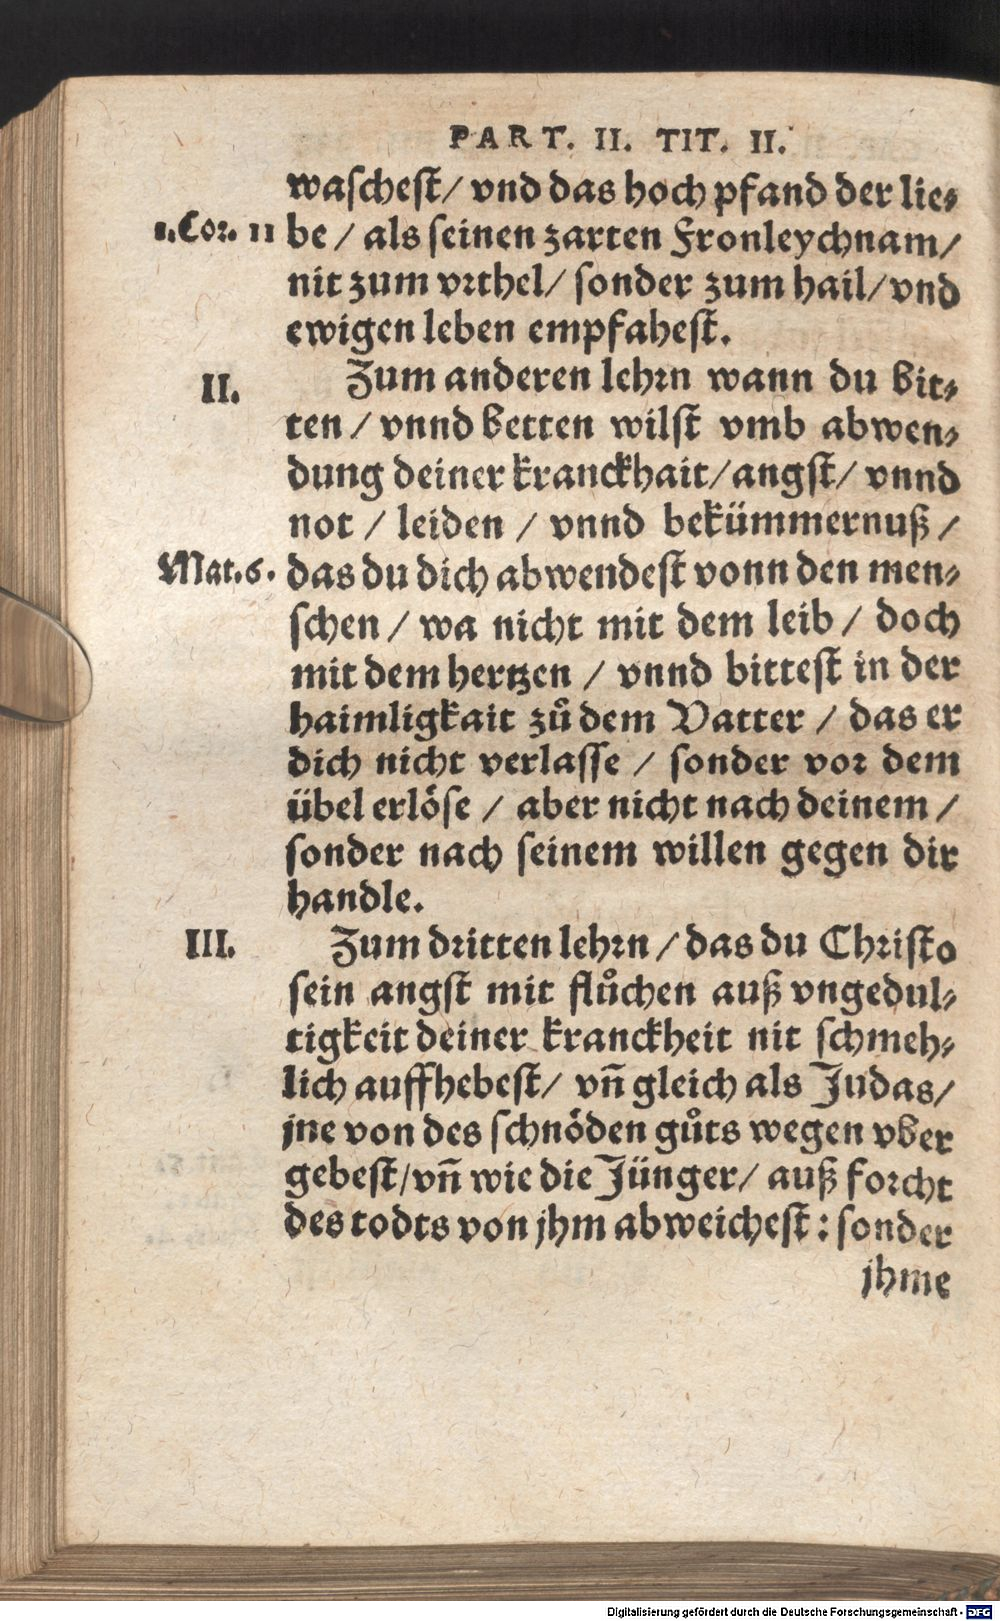 PART. II. TIT. II.
waschest/ vnd das hoch pfand der lie⸗
1.Cor. 11 be / als seinen zarten Fronleychnam/
nit zum vrthel/ sonder zum hail/ vnd
ewigen leben empfahest.
II. Zum anderen lehrn wann du bit⸗
ten / vnnd betten wilst vmb abwen⸗
dung deiner kranckhait/ angst/ vnnd
not / leiden / vnnd bekümmernuß /
Mat.6. das du dich abwendest vonn den men⸗
schen / wa nicht mit dem leib / doch
mit dem hertzen / vnnd bittest in der
haimligkait zuͦ dem Vatter / das er
dich nicht verlasse / sonder vor dem
übel erlöse / aber nicht nach deinem /
sonder nach seinem willen gegen dir
handle.
III. Zum dritten lehrn / das du Christo
sein angst mit fluͦchen auß vngedul⸗
tigkeit deiner kranckheit nit schmeh⸗
lich auffhebest/ vñ gleich als Judas/
jne von des schnöden guͦts wegen vber
gebest/ vñ wie die Jünger/ auß forcht
des todts von jhm abweichest: sonder
jhme
Digitalisierung gefördert durch die Deutsche Forschungsgemeinschaft - DFG